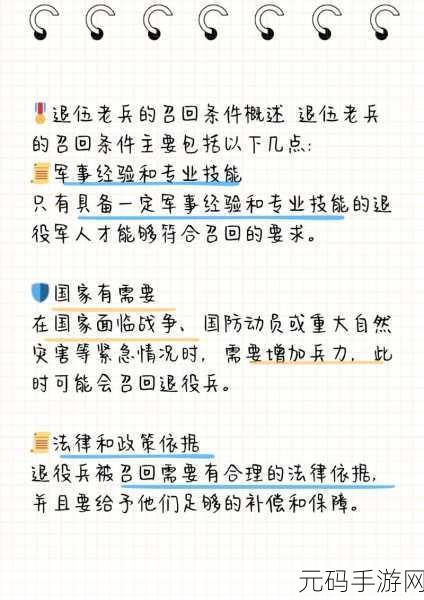 🎖️退伍老兵的召回条件概述 退伍老兵
的召回条件主要包括以下几点:
📜军事经验和专业技能
只有具备一定军事经验和专业技能的退
役军人才能够符合召回的要求。
🛡️国家有需要
在国家面临战争、国防动员或重大自然
灾害等紧急情况时, 需要增加兵力, 此
时可能会召回退役兵。
📜法律和政策依据
退役兵被召回需要有合理的法律依据,
并且要给予他们足够的补偿和保障。
元码手游网